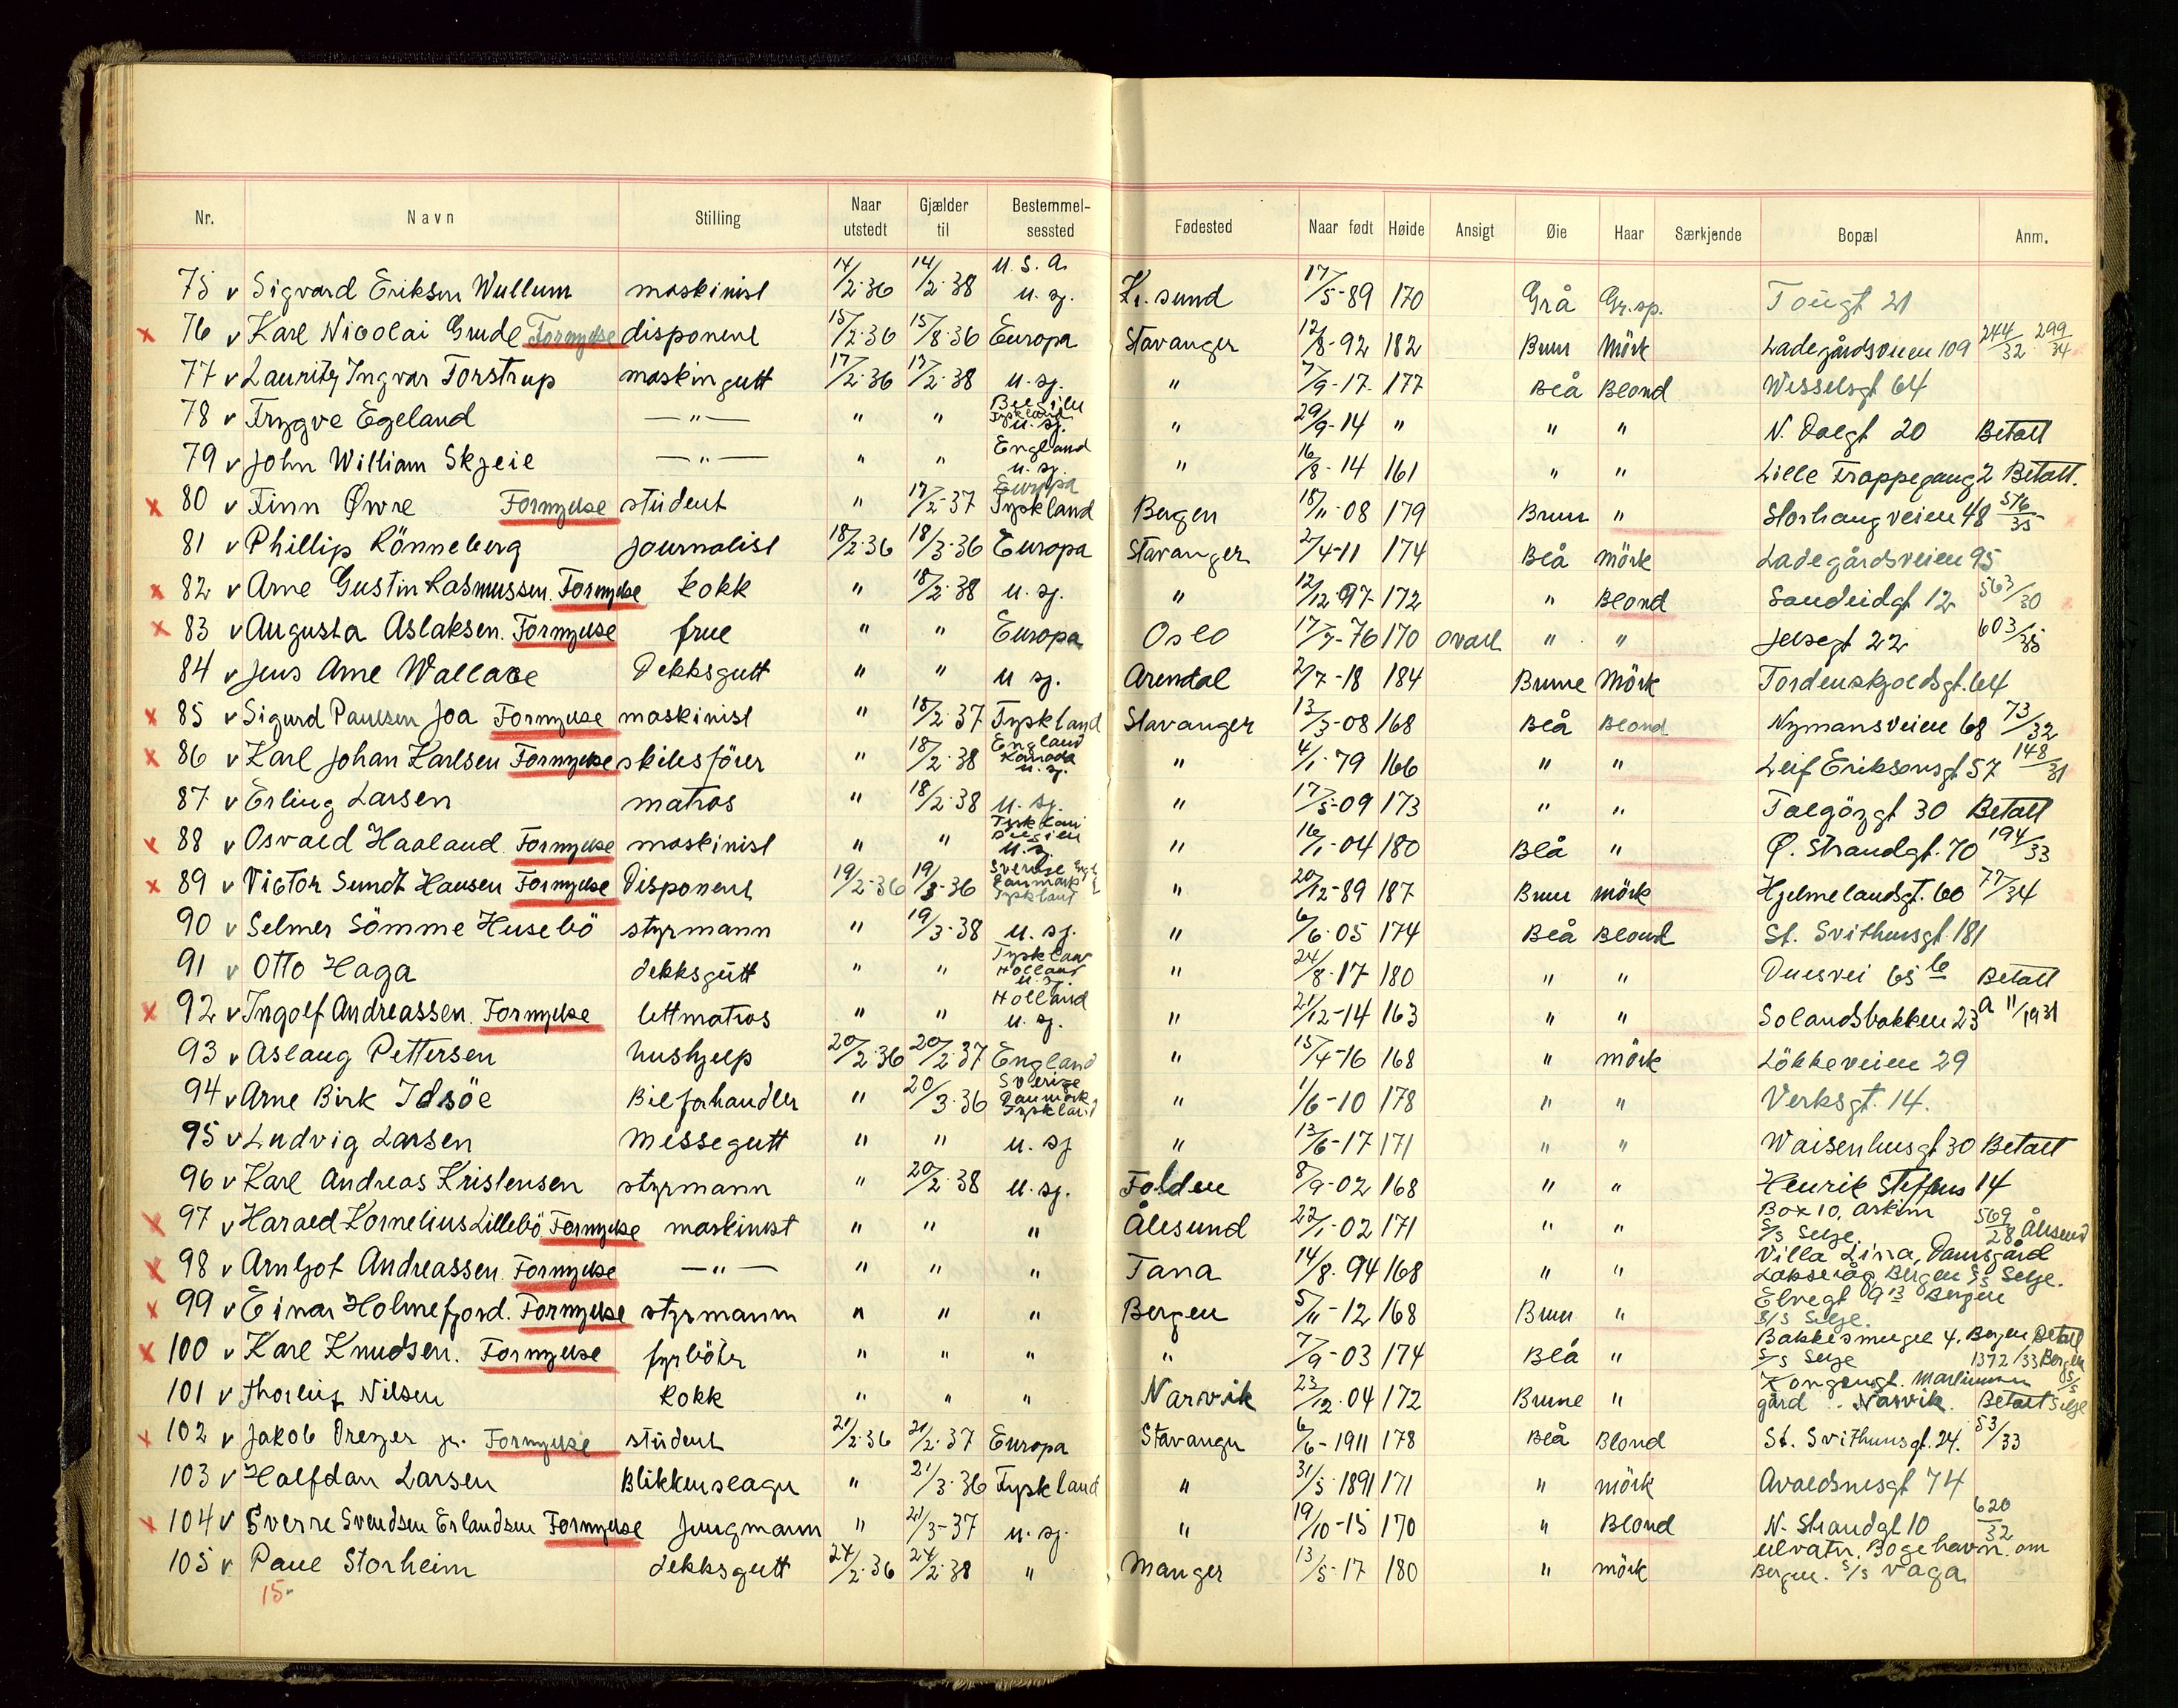 Nr. Navn Stilling Naar utstedt Gjælder til Bestemmel-sessted Fødested Naar født Høide Ansigt Øie Haar Særkjende Bopæl Anm.
75 v Sigvard Eriksen Wullum maskinist 14/2-36 14/2-38 U.S.A. u. sj. Kr. sund 17/5-89 170 Grå Gr. sp. Tougt 21
x 76 v Karl Nicolai Grude Fornyelse disponent 15/2-36 15/8-36 Europa Stavanger 12/8-92 182 Brun Mörk Ladegårdsveien 109 244/32 299/34
77 v Lauritz Ingvar Torstrup maskingutt 17/2-36 17/2-38 u. sj. " 7/9-17 177 Blå Blond Wesselsgt 64
78 v Trygve Egeland —"— " " Belgien Tyskland u. sj. " 29/9-14 " " " N. Dalgt 20 Betalt
79 v John William Skjeie —"— " " England u. sj. " 16/8-14 161 " " Lille Trappegang 2 Betalt.
x 80 v Finn Øvre Fornyelse student " 17/2-37 Europa Tyskland Bergen 18/11-08 179 Brun " Storhaugveien 48 576/35
81 v Phillip Rönneberg journalist 18/2-36 18/3-36 Europa Stavanger 2/4-11 174 Blå Mörk Ladegårdsveien 95
x 82 v Arne Gustin Rasmussen. Fornyelse kokk " 18/2-38 u. sj. " 12/12-97 172 " Blond Sandeidgt 12 563/30
x 83 v Augusta Aslaksen. Fornyelse frue " " Europa Oslo 17/7-76 170 ovalt " " Jelsegt 22 603/35
84 v Jens Arne Wallace Dekksgutt " " u sj. Arendal 2/7-18 184 Brune Mörk Tordenskjoldsgt. 64
x 85 v Sigurd Paulsen Joa Fornyelse maskinist " 18/2-37 Tyskland Stavanger 13/3-08 168 Blå Blond Nymansveien 68 73/32
x 86 v Karl Johan Karlsen Fornyelse skibsförer " 18/2-38 England Kanada u. sj. " 4/1-79 166 " " Leif Eriksonsgt 57 148/31
87 v Erling Larsen matros " 18/2-38 u. sj. " 17/5-09 173 " " Talgözgt 30 Betalt
x 88 v Osvald Haaland Fornyelse maskinist " " Tyskland Belgien u. sj. " 16/1-04 180 Blå " Ø. Strandgt. 70 194/33
x 89 v Victor Sundt Hansen Fornyelse Disponent 19/2-36 19/3-36 Sverige Engl. Danmark Tyskland " 20/12-89 187 Brun mörk Hjelmelandsgt. 60 77/34
90 v Selmer Sömme Husebö styrmann " 19/3-38 u. sj. " 6/6-05 174 Blå Blond St. Svithunsgt. 181
91 v Otto Haga dekksgutt " " Tyskland Holland u. sj. " 24/8-17 180 " " Duesvei 65 b Betalt
x 92 v Ingolf Andreassen. Fornyelse lettmatros " " Holland u. sj. " 21/12-14 163 " " Solandsbakken 23 a 11/1931
93 v Aslaug Pettersen hushjelp 20/2-36 20/2-37 England " 15/4-16 168 " mörk Lökkeveien 29
94 v Arne Birk Idsöe Bilforhandler " 20/3-36 Sverige Danmark Tyskland " 1/6-10 178 " " Verksgt. 14.
95 v Ludvig Larsen Messegutt " " u. sj " 13/6-17 171 " " Waisenhusgt 30 Betalt
96 v Karl Andreas Kristensen styrmann " 20/2-38 u. sj. Folden 8/9-02 168 " " Henrik Steffens 14
x 97 v Harald Kornelius Lillebö Fornyelse maskinist " " " Ålesund 22/1-02 171 " " Box 10, Askim S/S Selje 569/28 Ålesund
x 98 v Arnljot Andreassen. Fornyelse —"— " " " Tana 14/8-94 168 " " Villa Lina, Damsgård Laksevåg Bergen S/S Selje.
x 99 v Einar Holmefjord. Fornyelse styrmann " " " Bergen 5/11-12 168 Brun " Elvegt 9 B Bergen S/S Selje.
x 100 v Karl Knudsen. Fornyelse fyrböter " " " " 7/9-03 174 Blå " Bakkesmuget 4. Bergen Betalt S/S Selje 1372/33 Bergen
101 v Thorleif Nilsen kokk " " " Narvik 23/12-04 172 Brune " Kongensgt. gård Narvik. Betalt S/S Selje
x 102 v Jakob Dreyer jr. Fornyelse student 21/2-36 21/2-37 Europa Stavanger 6/6-1911 178 Blå Blond St. Svithunsgt. 24. 53/33
103 v Halfdan Larsen Blikkenslager " 21/3-36 Tyskland " 31/5-1891 171 " mörk Avaldsnesgt 74
x 104 v Sverre Svendsen Erlandsen Fornyelse Jungmann " 21/3-37 u. sj. " 19/10-15 170 " Blond N. Strandgt 10 620/32
105 v Paul Storheim dekksgutt 24/2-36 24/2-38 " Manger 13/5-17 180 " mörk Ulvatn. Bogehavn. om Bergen. S/S Vaga
15-